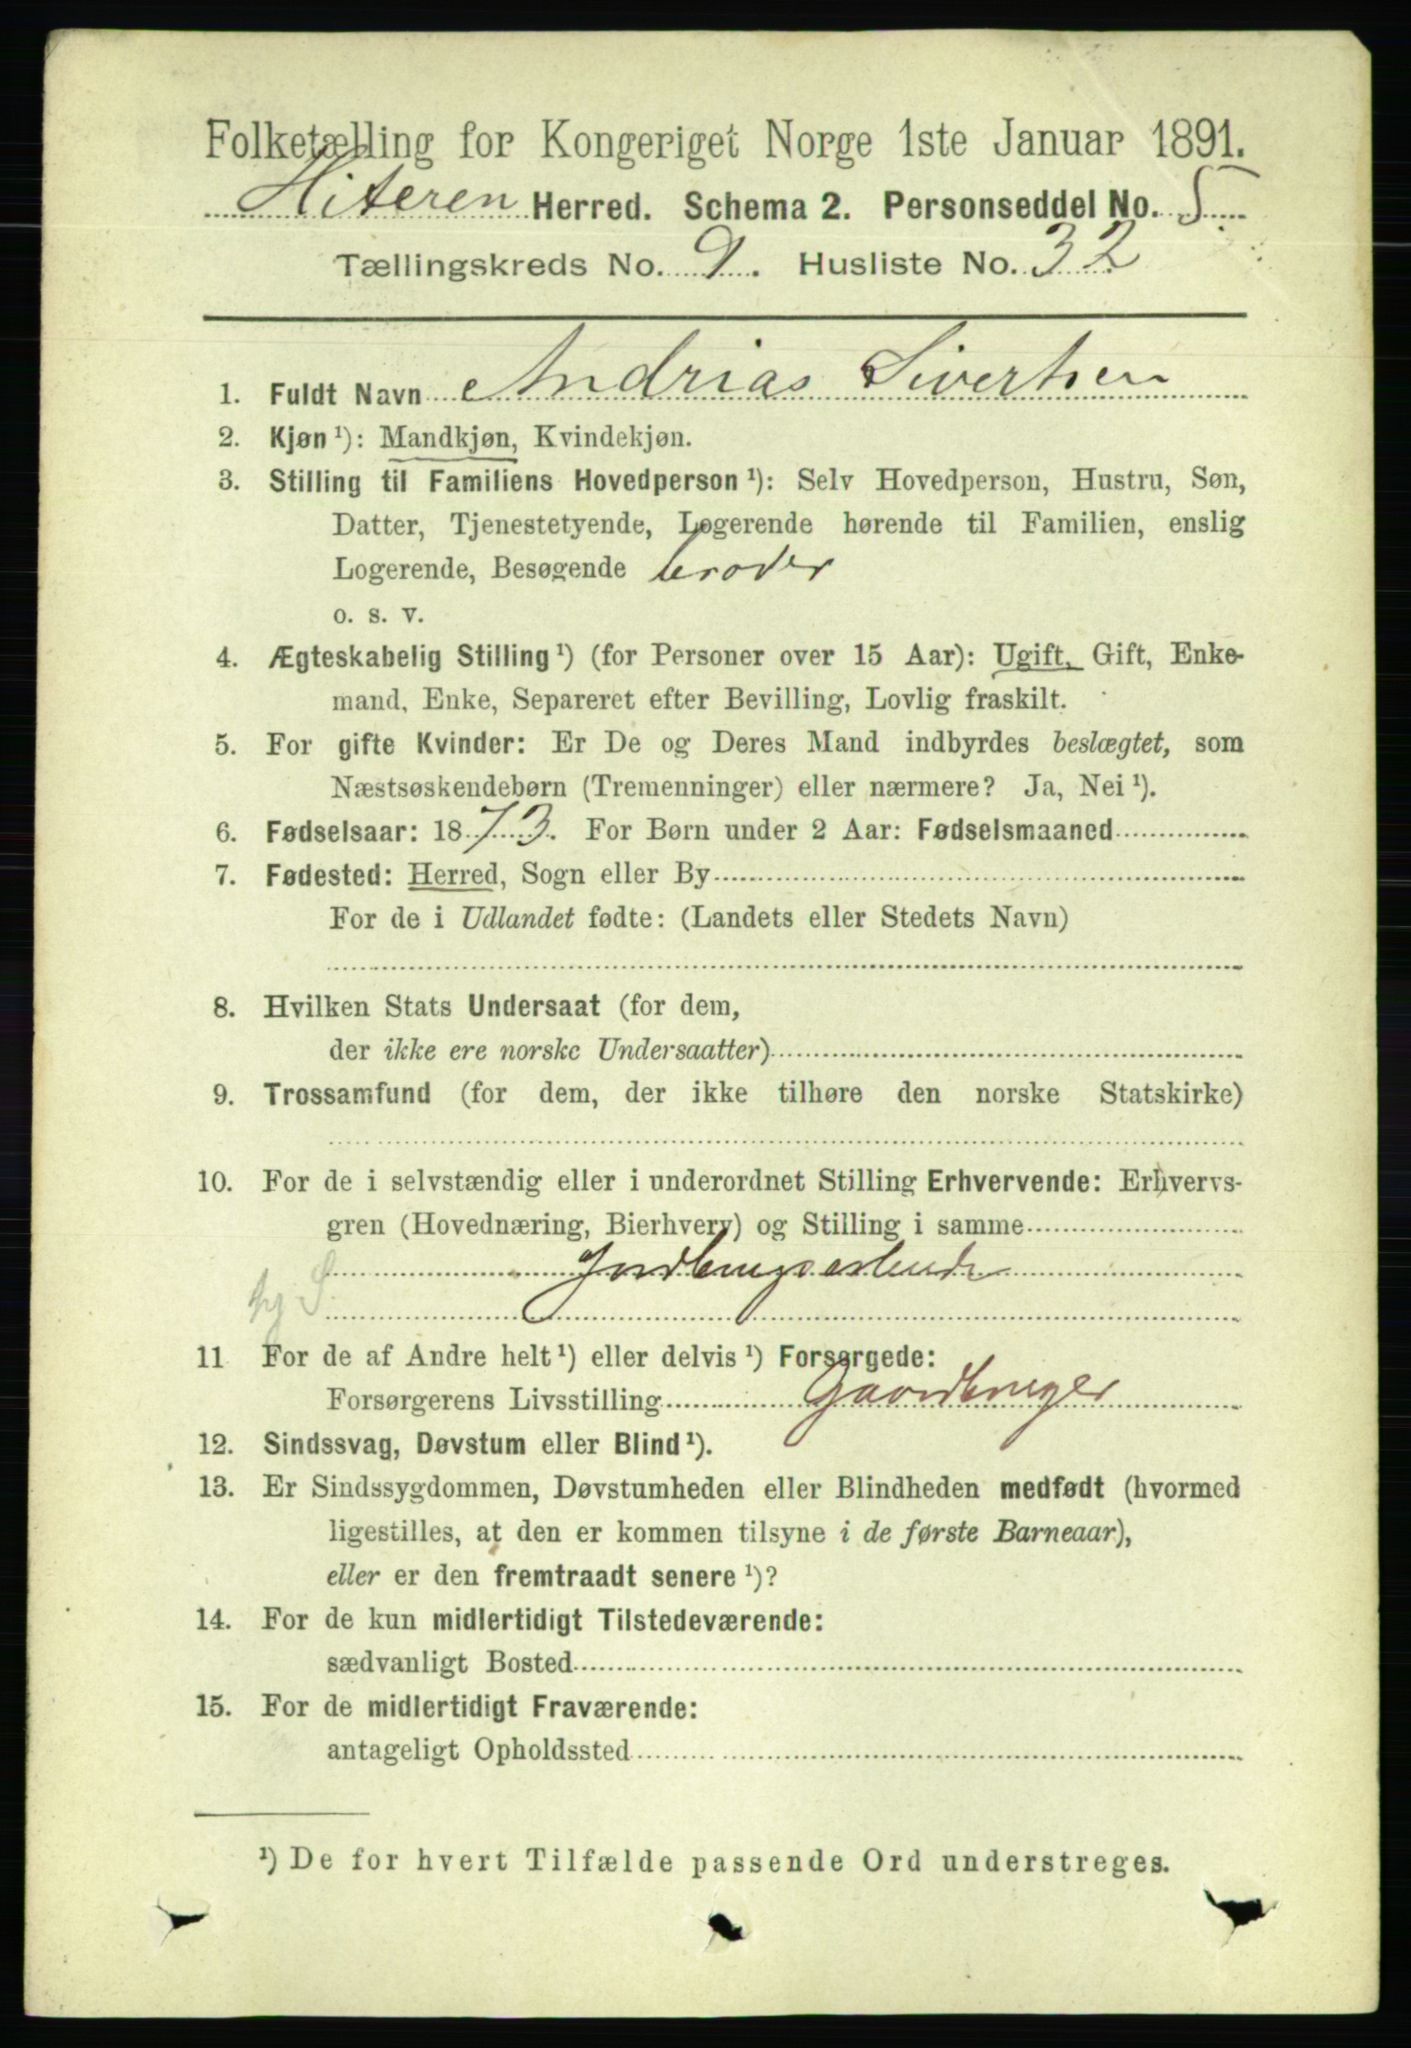 Folketælling for Kongeriget Norge 1ste Januar 1891.
Hiteren Herred. Schema 2. Personseddel No. 5
Tællingskreds No. 9. Husliste No. 32
1. Fuldt Navn Andrias Sivertsen
2. Kjøn ¹): Mandkjøn, Kvindekjøn.
3. Stilling til Familiens Hovedperson ¹): Selv Hovedperson, Hustru, Søn,
Datter, Tjenestetyende, Logerende hørende til Familien, enslig
Logerende, Besøgende broder
o. s. v.
4. Ægteskabelig Stilling ¹) (for Personer over 15 Aar): Ugift, Gift, Enke-
mand, Enke, Separeret efter Bevilling, Lovlig fraskilt.
5. For gifte Kvinder: Er De og Deres Mand indbyrdes beslægtet, som
Næstsøskendebørn (Tremenninger) eller nærmere? Ja, Nei ¹).
6. Fødselsaar: 1873. For Børn under 2 Aar: Fødselsmaaned
7. Fødested: Herred, Sogn eller By
For de i Udlandet fødte: (Landets eller Stedets Navn)
8. Hvilken Stats Undersaat (for dem,
der ikke ere norske Undersaatter)
9. Trossamfund (for dem, der ikke tilhøre den norske Statskirke)
10. For de i selvstændig eller i underordnet Stilling Erhvervende: Erhvervs-
gren (Hovednæring, Bierhverv) og Stilling i samme
Jordbrugsarbeide
11 For de af Andre helt ¹) eller delvis ¹) Forsørgede:
Forsørgerens Livsstilling Gaardbruger
12. Sindssvag, Døvstum eller Blind ¹).
13. Er Sindssygdommen, Døvstumheden eller Blindheden medfødt (hvormed
ligestilles, at den er kommen tilsyne i de første Barneaar),
eller er den fremtraadt senere ¹)?
14. For de kun midlertidigt Tilstedeværende:
sædvanligt Bosted
15. For de midlertidigt Fraværende:
antageligt Opholdssted
¹) De for hvert Tilfælde passende Ord understreges.